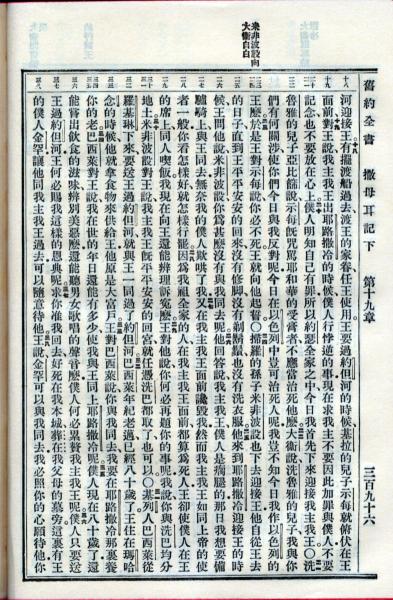 舊約全書 撒母耳記下 第十九章 三百九十六
米非波設向
大衛自白
河迎接王有擺渡船過去渡王的家眷任王使用王要過約但河的時候基拉的兒子示每就俯伏在王
面前對王說我主我王出耶路撒冷的時候僕人行悖逆的事現在求我主不要因此加罪與僕人不要
記念也不要放在心上僕人明知自己有罪所以約瑟全家之中今日我首先下來迎接我主我王〇洗
魯雅的兒子亞比篩說示每旣咒罵耶和華的受膏者不應當治死他麼大衛說洗魯雅的兒子我與你
們有何關涉使你們今日與我反對呢今日在以色列中豈可治死人呢我豈不知今日我作以色列的
王麼於是王對示每說你必不死王就向他起誓〇掃羅的孫子米非波設也下去迎接王他自從王去
的日子直到王平平安安的回來沒有修脚沒有剃鬍鬚也沒有洗衣服他來到耶路撒冷迎接王的時
候王問他說米非波設你爲甚麼沒有與我同去呢他回答說我主我王僕人是瘸腿的那日我想要備
驢騎上與王同去無奈我的僕人欺哄了我又在我主我王面前讒毀我然而我主我王如同上帝的使
者一般你看怎樣好就怎樣行罷因爲我祖全家的人在我主我王面前都算爲死人王卻使僕人在王
的席上同人喫飯我現在向王還能辨理訴寃麼王對他說你何必再題你的事呢我說你與洗巴均分
地土米非波設對王說我主我王旣平平安安的回宮就任憑洗巴都取了也可以〇基列人巴西萊從
羅基琳下來要送王過約但河就與王一同過了約但河巴西萊年紀老邁已經八十歲了王住在瑪哈
念的時候他就拿食物來供給王他原是大富戶王對巴西萊說你與我同去我要在耶路撒冷那裏養
你的老巴西萊對王說我在世的年日還能有多少使我與王同上耶路撒冷呢僕人現在八十歲了還
能嘗出飲食的滋味辨別美惡麼還能聽男女歌唱的聲音麼僕人何必累贅我主我王呢僕人只要送
王過約但河王何必賜我這樣的恩典呢求你准我回去好死在我本城葬在我父母的墓旁這裏有王
的僕人金罕讓他同我主我王過去可以隨意待他王說金罕可以與我同去我必照你的心願待他你